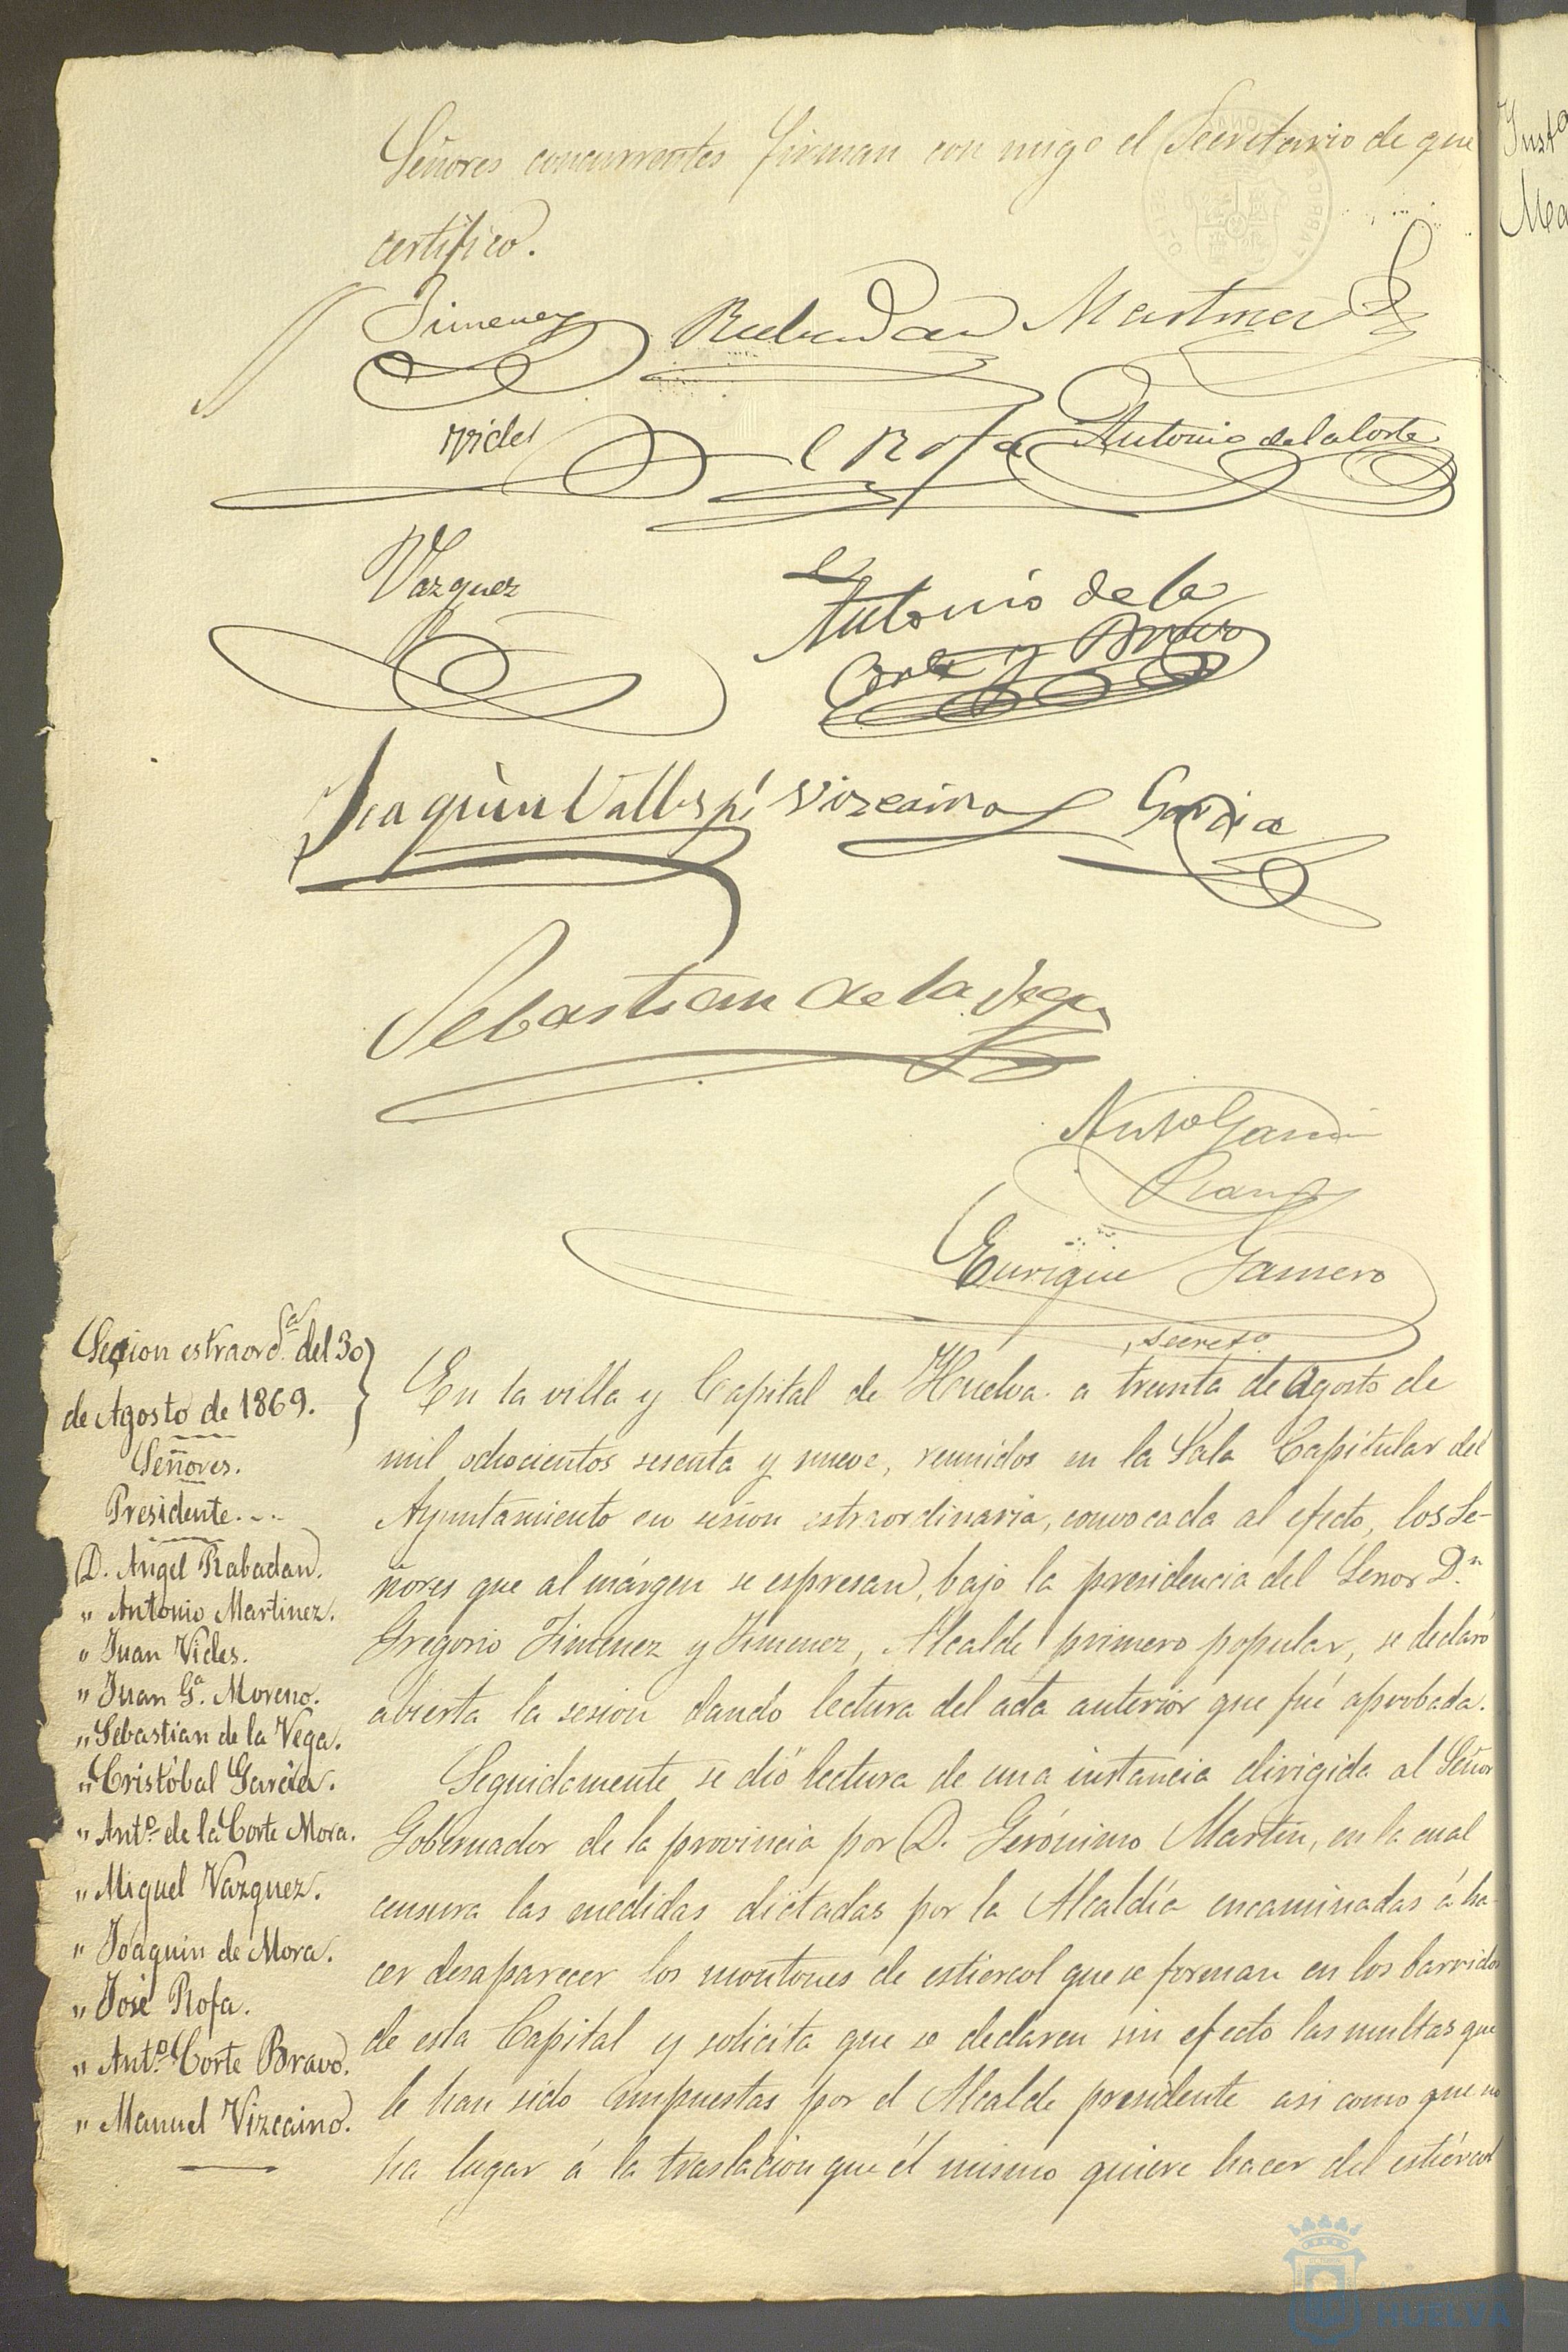 Señores concurrentes firman con migo el Secretario de que
certifico.
Jimenez Rabadan Martinez
Vides J Rofa Antonio de la Corte
Vazquez
Antonio de la
Corte y Bravo
Joaquin Vallespi Vizcaino Garcia
Sebastian de la Vega
Antº Garcia
Enrique Gamero
secretº
Sesion estraordª del 30
de Agosto de 1869.
Señores.
Presidente...
D. Angel Rabadan.
" Antonio Martinez.
" Juan Vides.
" Juan Gª. Moreno.
" Sebastian de la Vega.
" Cristóbal Garcia.
" Antº de la Corte Mora.
" Miguel Vazquez.
" Joaquin de Mora.
" José Rofa.
" Antº Corte Bravo.
" Manuel Vizcaino.
En la villa y Capital de Huelva a treinta de Agosto de
mil ochocientos sesenta y nueve, reunidos en la Sala Capitular del
Ayuntamiento en sesion estraordinaria, convocada al efecto, los Se-
ñores que al márgen se espresan, bajo la presidencia del Señor Dⁿ
Gregorio Jimenez y Jimenez, Alcalde primero popular, se declaró
abierta la sesion dando lectura del acta anterior que fué aprobada.
Seguidamente se dió lectura de una instancia dirigida al Señor
Gobernador de la provincia por D. Gerónimo Martin, en la cual
censura las medidas dictadas por la Alcaldía encaminadas á ha-
cer desaparecer los montones de estiercol que se forman en los barridos
de esta Capital y solicita que se declaren sin efecto las multas que
le han sido impuestas por el Alcalde presidente asi como que no
ha lugar á la traslacion que él mismo quiere hacer del estiércol
HUELVA